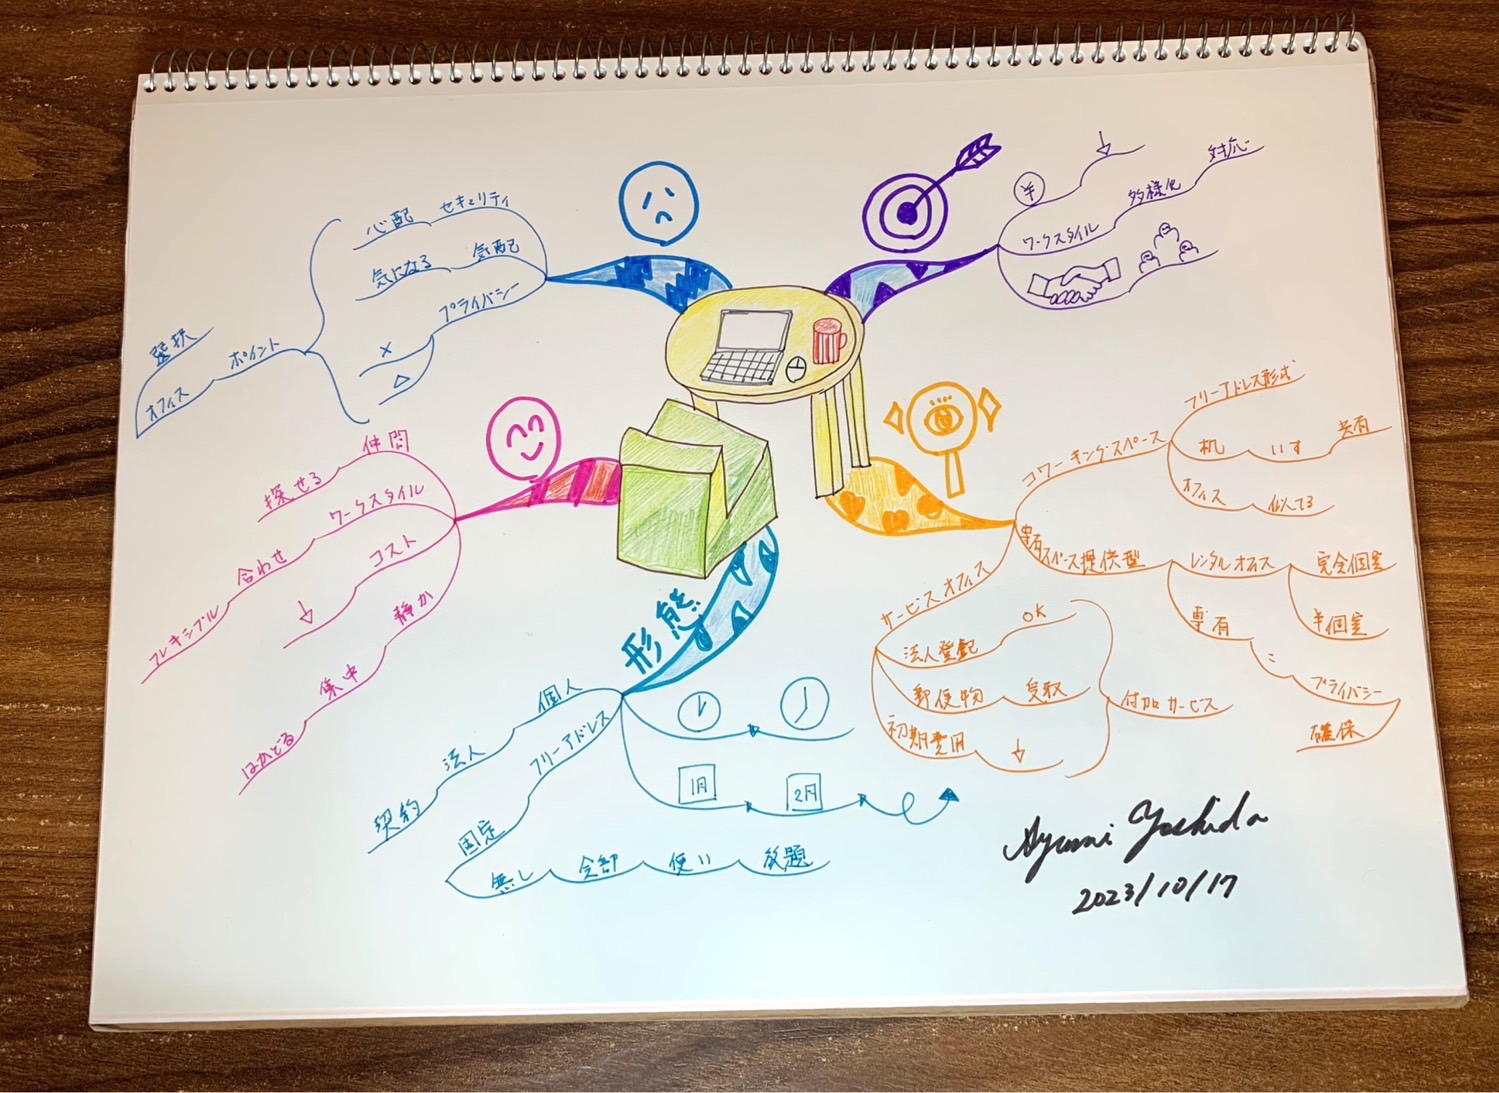 ¥
ワークスタイル 多様化 対応
コワーキングスペース
フリーアドレス形式
机 いす 共有
オフィス 似てる
専有スペース提供型
レンタルオフィス 完全個室
半個室
専有 = プライバシー
確保
サービスオフィス
法人登記 OK
郵便物 受取
初期費用
付加サービス
形態
1月 2月
個人
法人
契約
フリーアドレス
固定
無し 全部 使い 放題
仲間
探せる
ワークスタイル
合わせ
フレキシブル
コスト
静か
集中
はかどる
セキュリティ
心配
気配
気になる
プライバシー
×
△
ポイント
オフィス
選択
Ayumi Yoshida
2023/10/17